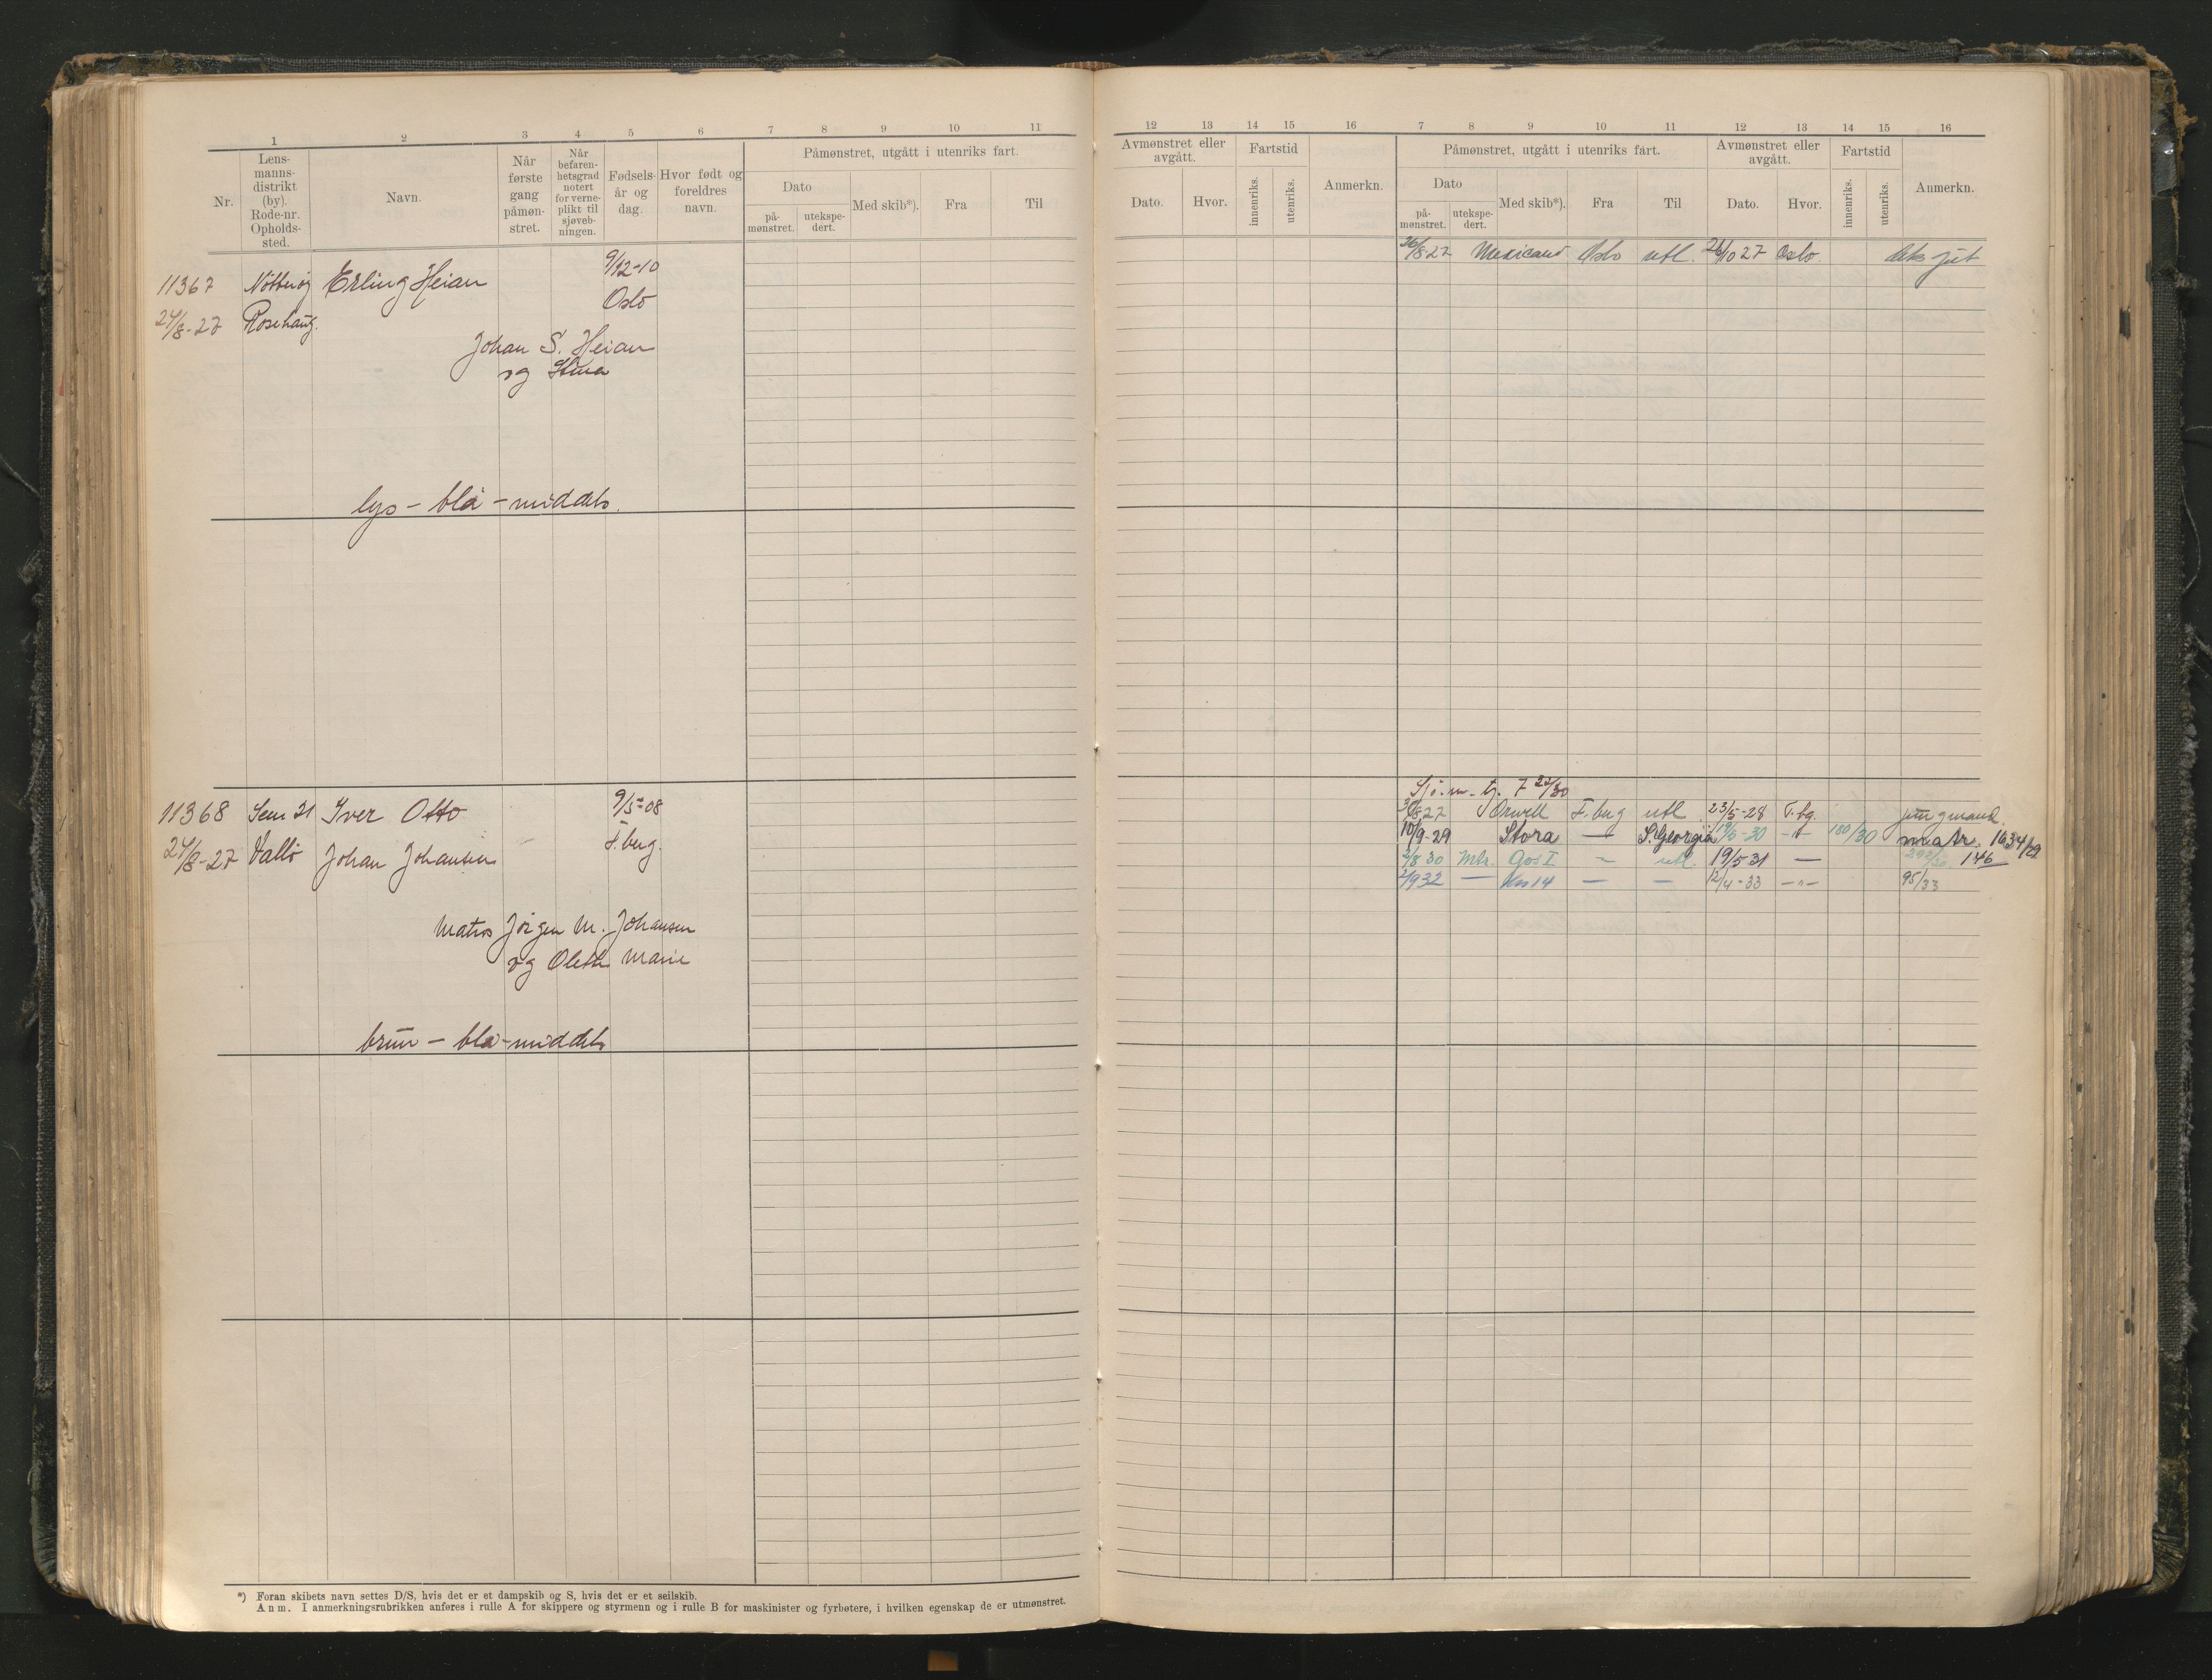 1 2 3 4 5 6 7 8 9 10 11
Nr.
Lens-
manns-
distrikt
(by).
Rode-nr.
Opholds-
sted.
Navn.
Når
første
gang
påmøn-
stret.
Når
befaren-
hetsgrad
notert
for verne-
plikt til
sjøveb-
ningen.
Fødsels-
år og
dag.
Hvor født og
foreldres
navn.
Påmønstret, utgått i utenriks fart.
Dato
på-
mønstret.
utekspe-
dert.
Med skib*).
Fra
Til
11367 Nøtterøy Erling Heian 9/12-10
24/8-27 Rosehaug. Oslo
Johan S. Heian
og Stina
lys - blå - middels.
11368 Sem 21 Iver Otto 9/5-08
24/8-27 Vallø Johan Johansen T.berg.
Matros Jørgen M. Johansen
og Olette Marie
brun - blå - middels
*) Foran skibets navn settes D/S, hvis det er et dampskib og S, hvis det er et seilskib.
Anm. I anmerkningsrubrikken anføres i rulle A for skippere og styrmenn og i rulle B for maskinister og fyrbøtere, i hvilken egenskap de er utmønstret.
12 13 14 15 16 7 8 9 10 11 12 13 14 15 16
Avmønstret eller
avgått.
Dato.
Hvor.
Fartstid
innenriks.
utenriks.
Anmerkn.
Påmønstret, utgått i utenriks fart.
Dato
på-
mønstret.
utekspe-
dert.
Med skib*).
Fra
Til
Avmønstret eller
avgått.
Dato.
Hvor.
Fartstid
innenriks.
utenriks.
Anmerkn.
26/8 27 Mexicano Oslo utl. 26/10 27 Oslo deksgut
Sjø.m. 7 22/30
30/8 27 Orwell T.berg utl. 23/5-28 T.bg. jungmand.
10/9-29 Stora — S.Georgia 19/5-30 -"- 180/30 matr. 1634/29
2/8 30 Mtr. Gos I - utl. 19/5 31 — 292/30 146
2/9 32 — Kos 14 — — 12/4-33 -"- 95/33